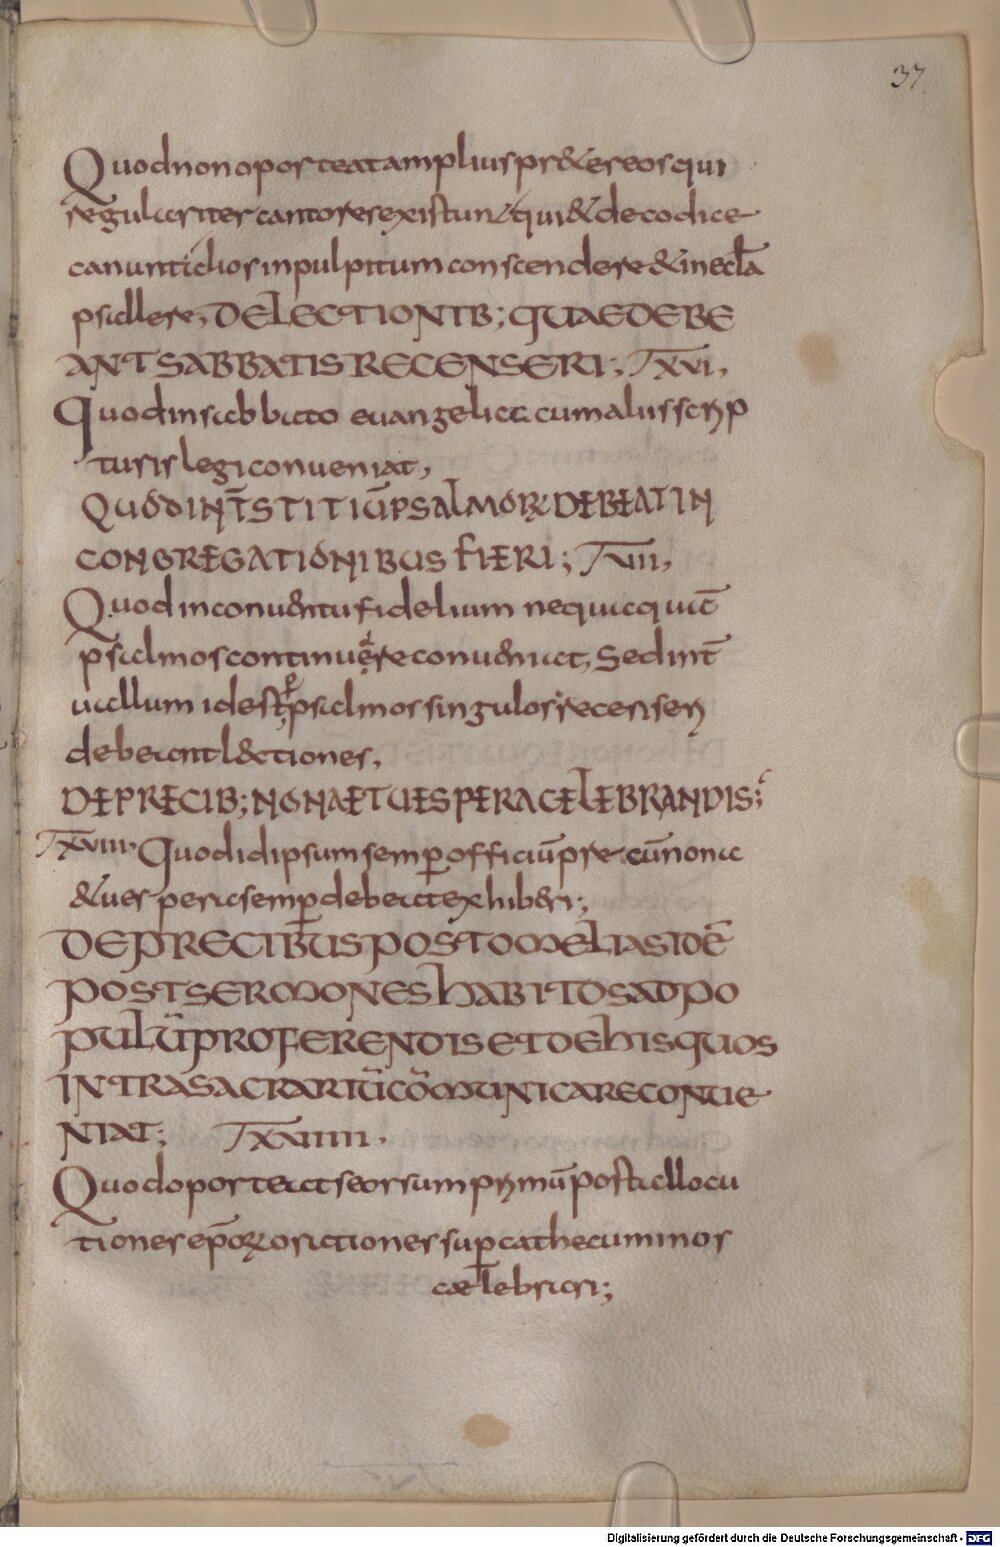 37
Quod non oporteat amplius pr&er eos qui
regulariter cantores existunt qui & de codice
canunt alios in pulpitum conscendere & in eccla
psallere, DE LECTIONIB; QUAE DEBE
ANT SABBATIS RECENSERI; T XVI,
Quod in sabbato euangelia cum aliis scrip
turis legi conueniat,
QUOD INTSTITIŪ PSALMORꝜ DEBEAT IN
CONGREGATIONIBUS FIERI; T XVII,
Quod in conuentu fidelium nequaquā
psalmos continuare conueniat, Sed int
uallum id est p psalmos singulos recenseri
debeant l&ctiones,
DE PRECIB; NONAE ET UESPERA CELEBRANDIS;
T XVIII. Quod id ipsum semp officiū precū nona
& uespera semp debeat exhib&ri;
DE PRECIBUS POST OMELIAS ID Ē
POST SERMONES HABITOS AD PO
PULŪ PROFERENDIS ET DE HIS QUOS
INTRA SACRARIŪ CŌMUNICARE CONUE
NIAT; T XVIIII.
Quod oporteat seorsum primū post allocu
tiones epōꝜ orationes sup cathecuminos
caelebrari;
Digitalisierung gefördert durch die Deutsche Forschungsgemeinschaft - DFG